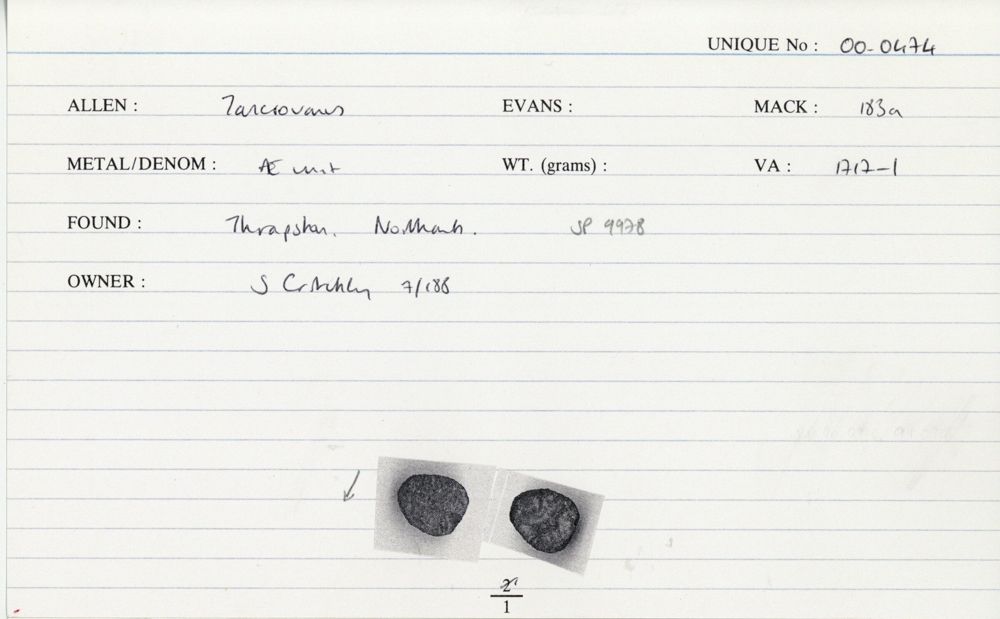 UNIQUE No : 00-0474
ALLEN : Tasciovanus EVANS : MACK : 183a
METAL/DENOM : Æ unit WT. (grams) : VA : 1717-1
FOUND : Thrapston. Northants. SP 9978
OWNER : S Critchley 7/188
2
1